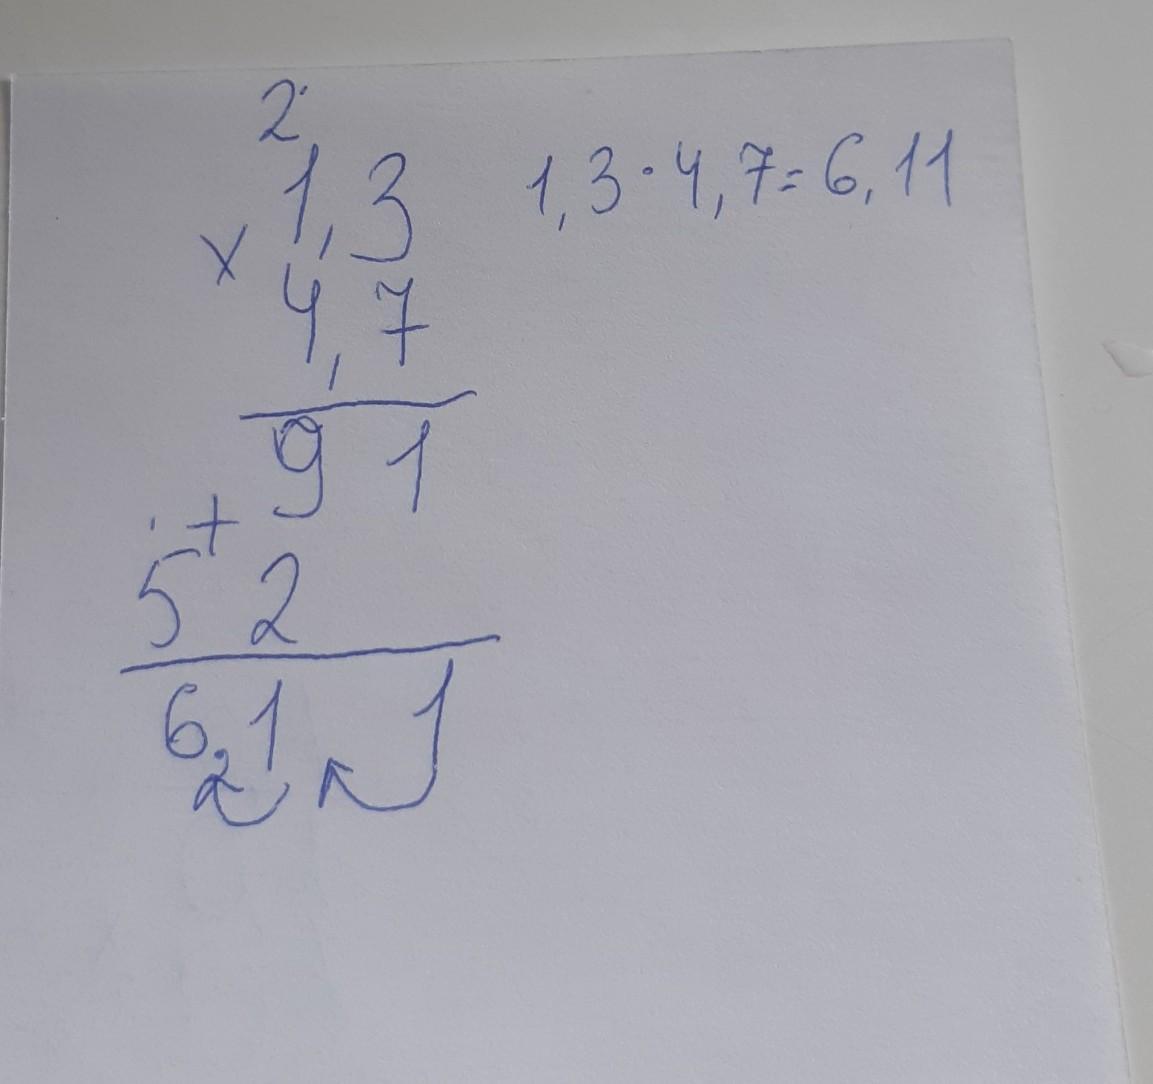 2
1,3 1,3·4,7=6,11
x
4,7
91
+
52
6,11